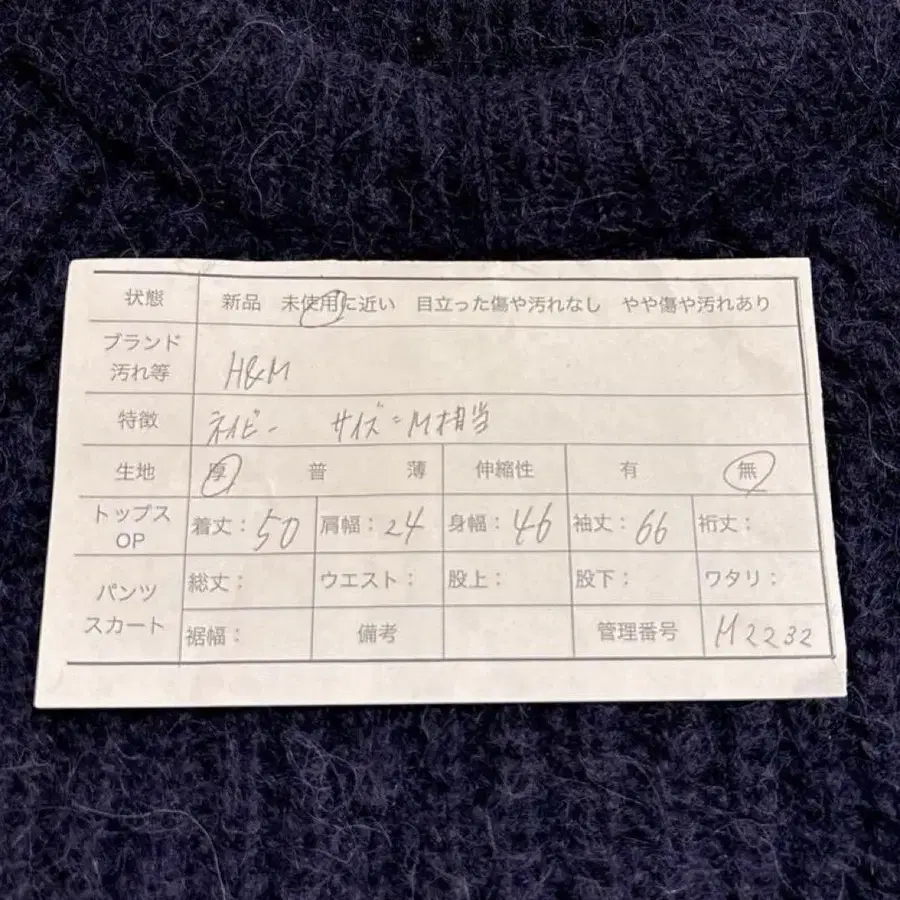 状態 新品 未使用に近い 目立った傷や汚れなし やや傷や汚れあり
ブランド
汚れ等 H&M
特徴 ネイビー サイズ=M相当
生地 厚 普 薄 伸縮性 有 無
トップス
OP 着丈: 50 肩幅: 24 身幅: 46 袖丈: 66 裄丈:
パンツ
スカート 総丈: ウエスト: 股上: 股下: ワタリ:
裾幅: 備考 管理番号 M2232